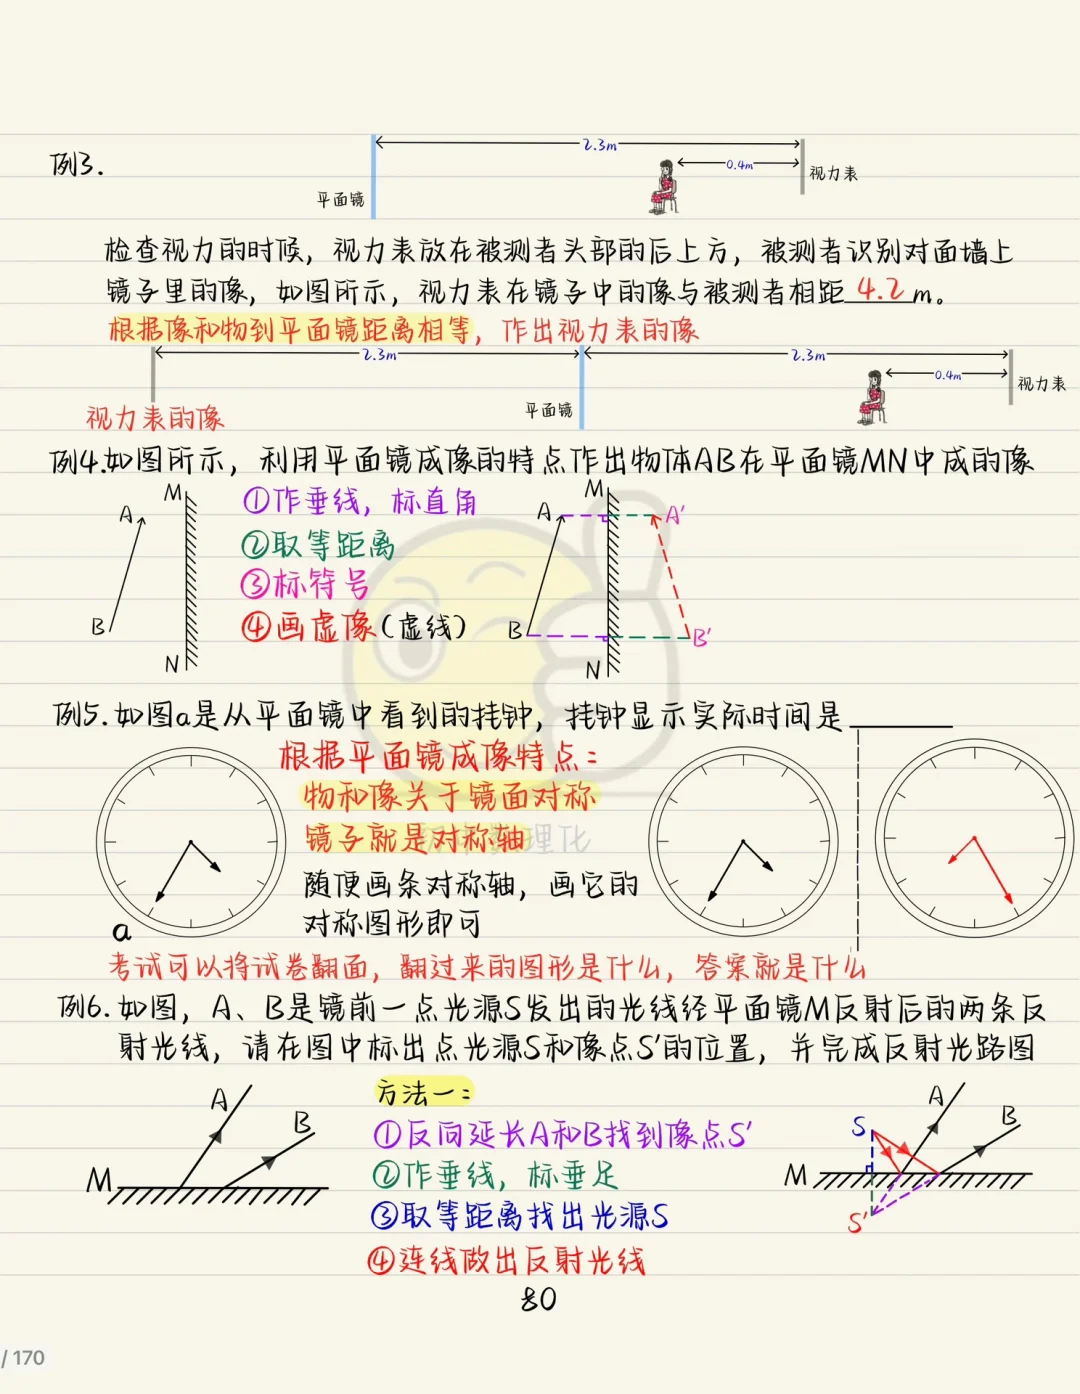 例3.
2.3m
0.4m
视力表
平面镜
检查视力的时候，视力表放在被测者头部的后上方，被测者识别对面墙上
镜子里的像，如图所示，视力表在镜子中的像与被测者相距 4.2 m。
根据像和物到平面镜距离相等，作出视力表的像
2.3m
2.3m
0.4m
视力表
平面镜
视力表的像
例4.如图所示，利用平面镜成像的特点作出物体AB在平面镜MN中成的像
M
A
B
N
①作垂线，标直角
②取等距离
③标符号
④画虚像(虚线)
M
A
A′
B
B′
N
例5.如图a是从平面镜中看到的挂钟，挂钟显示实际时间是
根据平面镜成像特点：
物和像关于镜面对称
镜子就是对称轴
随便画条对称轴，画它的
对称图形即可
a
考试可以将试卷翻面，翻过来的图形是什么，答案就是什么
例6.如图，A、B是镜前一点光源S发出的光线经平面镜M反射后的两条反
射光线，请在图中标出点光源S和像点S′的位置，并完成反射光路图
A
B
M
方法一：
①反向延长A和B找到像点S′
②作垂线，标垂足
③取等距离找出光源S
④连线做出反射光线
A
S
B
M
S′
80
/ 170